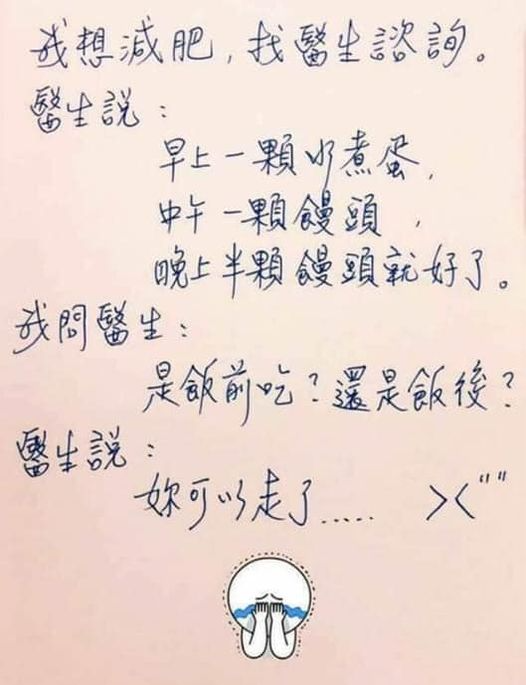 我想減肥,找醫生諮詢。
醫生說：
早上一顆水煮蛋,
中午一顆饅頭,
晚上半顆饅頭就好了。
我問醫生：
是飯前吃？還是飯後？
醫生說：
妳可以走了..... ><""